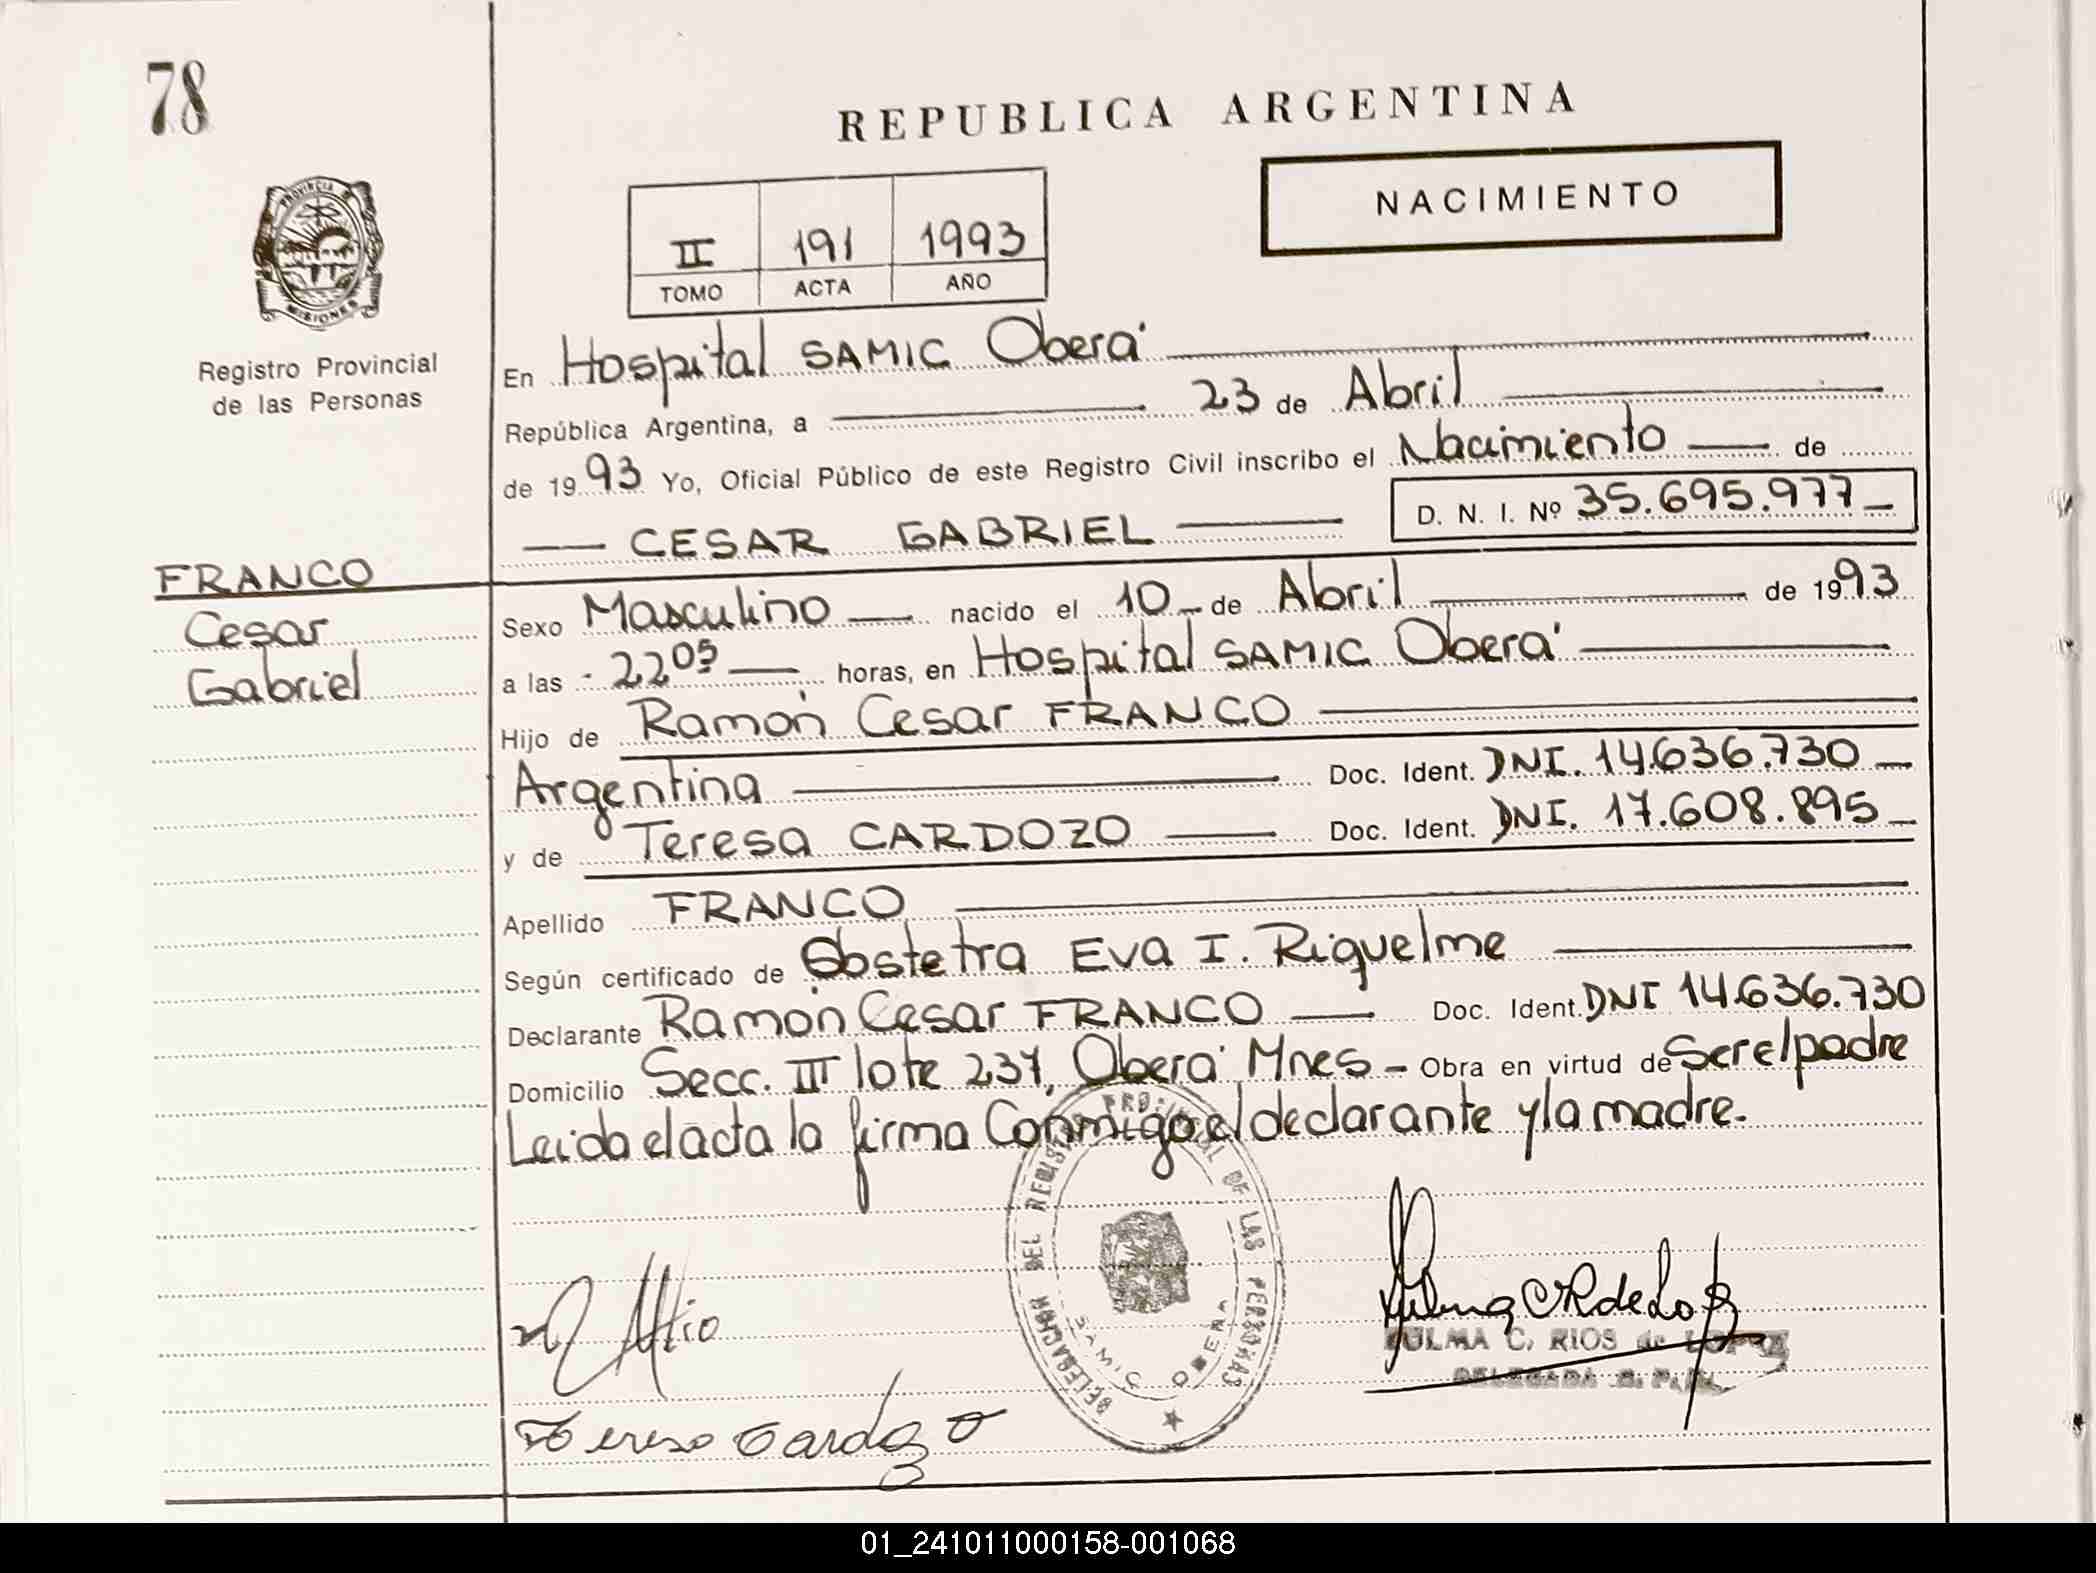 78
REPUBLICA ARGENTINA
NACIMIENTO
II 191 1993
TOMO ACTA AÑO
PROVINCIA
MISIONES
Registro Provincial
de las Personas
En Hospital SAMIC Oberá
República Argentina, a 23 de Abril
de 1993 Yo, Oficial Público de este Registro Civil inscribo el Nacimiento de
CESAR GABRIEL D. N. I. Nº 35.695.977
FRANCO
Cesar
Gabriel
Sexo Masculino nacido el 10 de Abril de 1993
a las 22 05 horas, en Hospital SAMIC Oberá
Hijo de Ramón Cesar FRANCO
Argentina Doc. Ident. DNI. 14.636.730
y de Teresa CARDOZO Doc. Ident. DNI. 17.608.895
Apellido FRANCO
Según certificado de Obstetra Eva I. Riquelme
Declarante Ramón Cesar FRANCO Doc. Ident. DNI 14.636.730
Domicilio Secc. III lote 237, Oberá Mnes - Obra en virtud de Ser el padre
Leida el acta la firma Conmigo el declarante y la madre.
DELEGACION DEL REGISTRO PROVINCIAL DE LAS PERSONAS
SAMIC OBERA
ZULMA C. RIOS de LOPEZ
DELEGADA R. P.
Teresa Cardozo
01_241011000158-001068